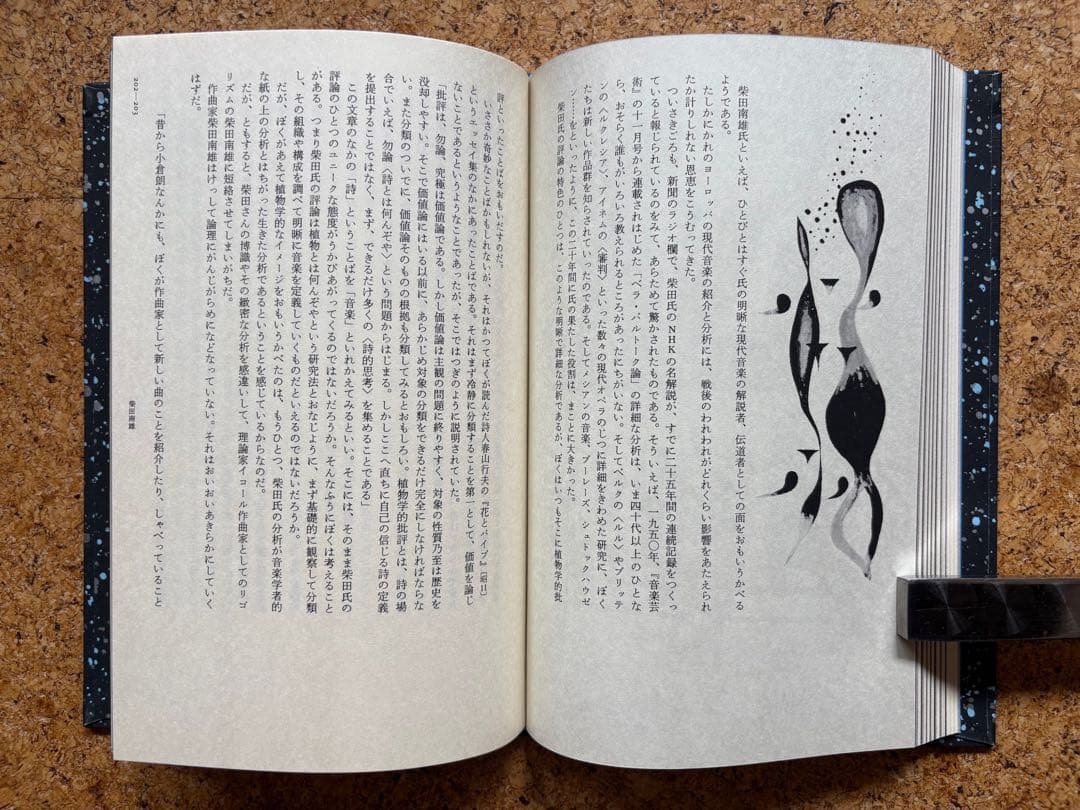 柴田南雄氏といえば、ひとびとはすぐ氏の明晰な現代音楽の解説者、伝道者としての面をおもいうかべる
ようである。
たしかにかれのヨーロッパの現代音楽の紹介と分析には、戦後のわれわれがどれくらい影響をあたえられ
たか計りしれない恩恵をこうむってきた。
ついさきごろも、新聞のラジオ欄で、柴田氏のNHKの名解説が、すでに二十五年間の連続記録をつくっ
ていると報じられているのをみて、あらためて驚かされたものである。そういえば、一九五〇年、『音楽芸
術』の十一月号から連載されはじめた「ベラ・バルトーク論」の詳細な分析は、いま四十代以上のひとな
ら、おそらく誰もがいろいろ教えられるところがあったにちがいない。そしてベルクの〈ルル〉やブリッテ
ンの〈ルクレシア〉、アイネムの〈審判〉といった数々の現代オペラのじつに詳細をきわめた研究に、ぼく
たちは新しい作品群を知らされていったのである。そしてメシアンの音楽、ブーレーズ、シュトックハウゼ
ン……をといったように、この二十年間に氏の果たした役割は、まことに大きかった。
柴田氏の評論の特色のひとつは、このような明晰で詳細な分析であるが、ぼくはいつもそこに植物学的批
評といったことばをおもいだすのだ。
いささか奇妙なことばかもしれないが、それはかつてぼくが読んだ詩人春山行夫の『花とパイプ』(昭11)
というエッセイ集のなかにあったことばである。それはまず冷静に分類することを第一として、価値を論じ
ないことであるというようなことであったが、そこではつぎのように説明されていた。
「批評は、勿論、究極は価値論である。しかし価値論は主観の問題に終りやすく、対象の性質乃至は歴史を
没却しやすい。そこで価値論にはいる以前に、あらかじめ対象の分類をできるだけ完全にしなければならな
い。また分類のついでに、価値論そのものの根拠も分類してみるとおもしろい。植物学的批評とは、詩の場
合でいえば、勿論〈詩とは何んぞや〉という問題からはじまる。しかしここへ直ちに自己の信じる詩の定義
を提出することではなく、まず、できるだけ多くの〈詩的思考〉を集めることである」
この文章のなかの「詩」ということばを「音楽」といれかえてみるとよい。そこには、そのまま柴田氏の
評論のひとつのユニークな態度がうかびあがってくるのではないだろうか。そんなふうにぼくは考えること
がある。つまり柴田氏の評論は植物とは何んぞやという研究法とおなじように、まず基礎的に観察して分類
し、その組織や構成を調べて明晰に音楽を定義していくものだといえるのではないだろうか。
だが、ぼくがあえて植物学的なイメージをおもいうかべたのは、もうひとつ、柴田氏の分析が音楽学者的
な紙の上の分析とはちがった生きた分析であるということを感じているからなのだ。
だが、ともすると、柴田さんの博識やその緻密な分析を感違いして、理論家イコール作曲家としてのリゴ
リズムの柴田南雄に短絡させてしまいがちだ。
作曲家柴田南雄はけっして論理にがんじがらめになどなっていない。それはおいおいあきらかにしていく
はずだ。
「昔から小倉朗なんかにも、ぼくが作曲家として新しい曲のことを紹介したり、しゃべっていること
柴田南雄
202—203